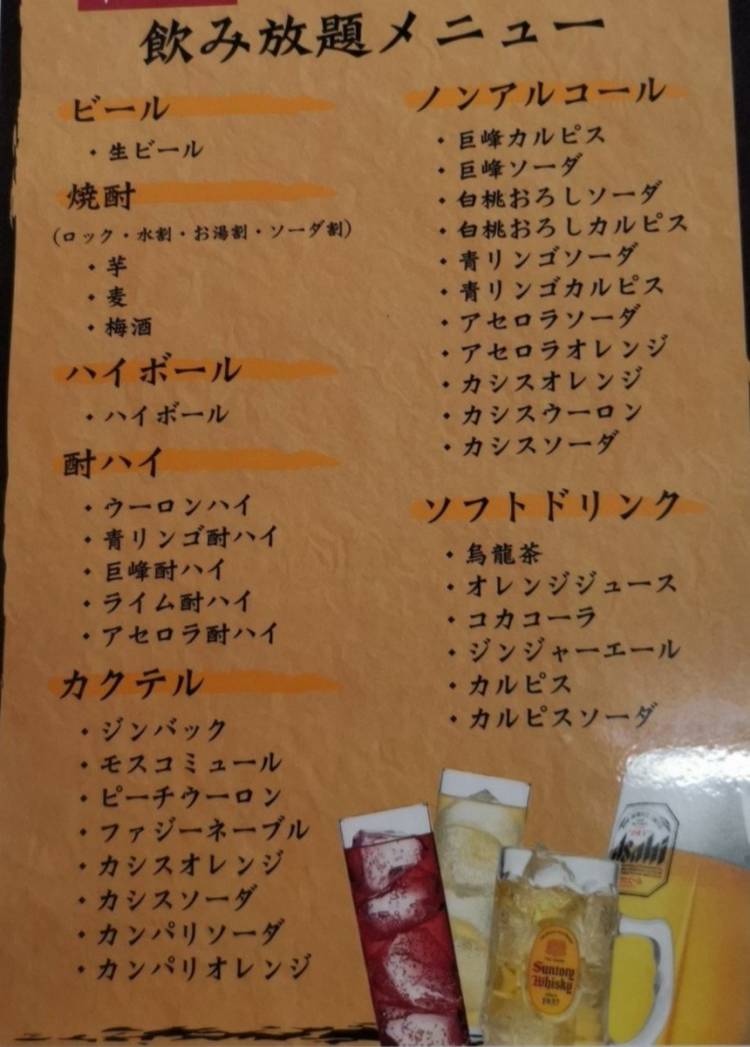 飲み放題メニュー
ビール
・生ビール
焼酎
(ロック・水割・お湯割・ソーダ割)
・芋
・麦
・梅酒
ハイボール
・ハイボール
酎ハイ
・ウーロンハイ
・青リンゴ酎ハイ
・巨峰酎ハイ
・ライム酎ハイ
・アセロラ酎ハイ
カクテル
・ジンバック
・モスコミュール
・ピーチウーロン
・ファジーネーブル
・カシスオレンジ
・カシスソーダ
・カンパリソーダ
・カンパリオレンジ
ノンアルコール
・巨峰カルピス
・巨峰ソーダ
・白桃おろしソーダ
・白桃おろしカルピス
・青リンゴソーダ
・青リンゴカルピス
・アセロラソーダ
・アセロラオレンジ
・カシスオレンジ
・カシスウーロン
・カシスソーダ
ソフトドリンク
・烏龍茶
・オレンジジュース
・コカコーラ
・ジンジャーエール
・カルピス
・カルピスソーダ
Asahi
Suntory
Whisky
1937